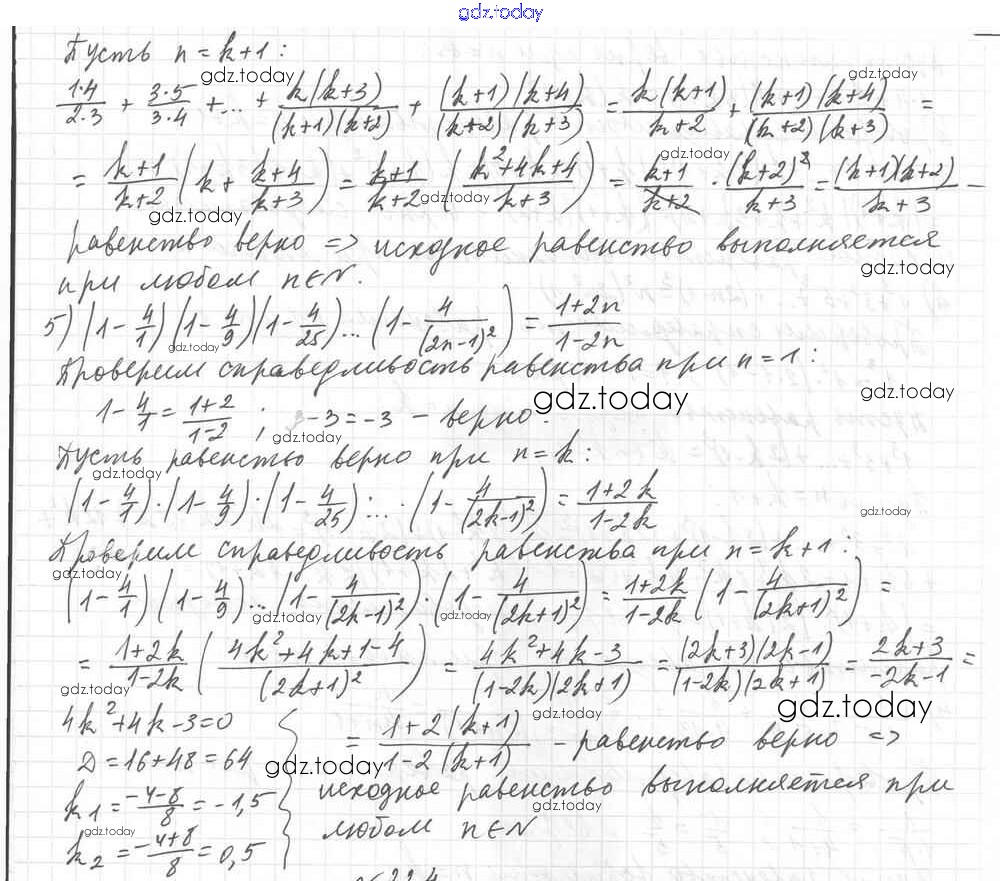 gdz.today
Пусть n = k+1:
gdz.today gdz.today
1·4/2·3 + 3·5/3·4 + ... + k(k+3)/(k+1)(k+2) + (k+1)(k+4)/(k+2)(k+3) = k(k+1)/k+2 + (k+1)(k+4)/(k+2)(k+3) =
gdz.today
= k+1/k+2 (k + k+4/k+3) = k+1/k+2 (k²+4k+4/k+3) = k+1/k+2 · (k+2)²/k+3 = (k+1)(k+2)/k+3 —
gdz.today gdz.today
равенство верно => исходное равенство выполняется
gdz.today
при любом n∈N.
5) (1 - 4/1)(1 - 4/9)(1 - 4/25)...(1 - 4/(2n-1)²) = 1+2n/1-2n
gdz.today
Проверим справедливость равенства при n = 1:
gdz.today gdz.today
1 - 4/1 = 1+2/1-2 ; -3 = -3 - верно.
gdz.today
Пусть равенство верно при n = k:
gdz.today
(1 - 4/1)·(1 - 4/9)·(1 - 4/25)·...·(1 - 4/(2k-1)²) = 1+2k/1-2k
gdz.today
Проверим справедливость равенства при n = k+1:
gdz.today
(1 - 4/1)(1 - 4/9)...(1 - 4/(2k-1)²)·(1 - 4/(2k+1)²) = 1+2k/1-2k (1 - 4/(2k+1)²) =
gdz.today gdz.today
= 1+2k/1-2k (4k²+4k+1-4/(2k+1)²) = 4k²+4k-3/(1-2k)(2k+1) = (2k+3)(2k-1)/(1-2k)(2k+1) = 2k+3/-2k-1 =
gdz.today gdz.today gdz.today
4k²+4k-3=0
D=16+48=64
k₁ = -4-8/8 = -1,5
k₂ = -4+8/8 = 0,5
gdz.today gdz.today
= 1+2(k+1)/1-2(k+1) - равенство верно =>
исходное равенство выполняется при
gdz.today
любом n∈N